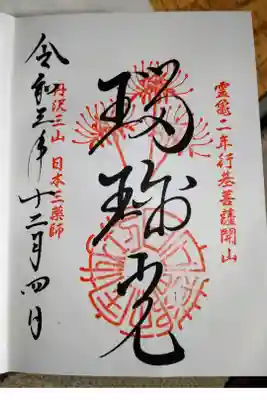 靈龜二年行基菩薩開山
瑠璃光
丹沢三山 日本三薬師
令和三年十二月四日